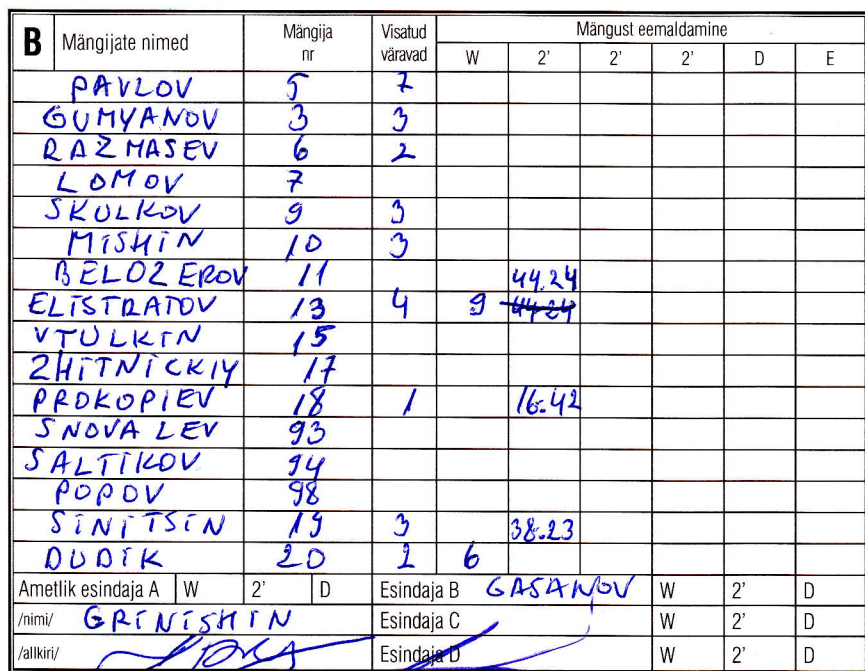 B Mängijate nimed Mängija nr Visatud väravad Mängust eemaldamine
W 2' 2' 2' D E
PAVLOV 5 7
GUMYANOV 3 3
RAZMASEV 6 2
LOMOV 7
SKULKOV 9 3
MISHIN 10 3
BELOZEROV 11 44.24
ELISTRATOV 13 4 9 44.24
VTULKIN 15
ZHITNICKIY 17
PROKOPIEV 18 1 16.42
SNOVALEV 93
SALTIKOV 94
POPOV 98
SINITSIN 19 3 38.23
DUDIK 20 2 6
Ametlik esindaja A W 2' D Esindaja B GASANOV W 2' D
/nimi/ GRINISHIN Esindaja C W 2' D
/allkiri/ Esindaja D W 2' D